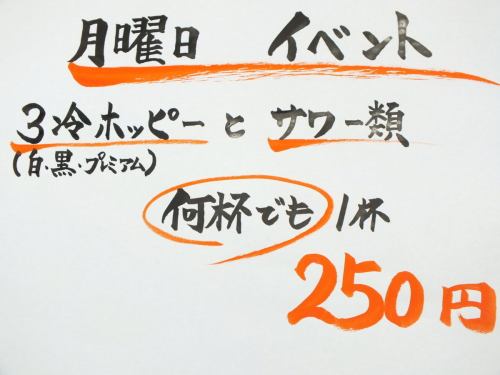 月曜日 イベント
3冷ホッピーと サワー類
(白・黒・プレミアム)
何杯でも 1杯
250円